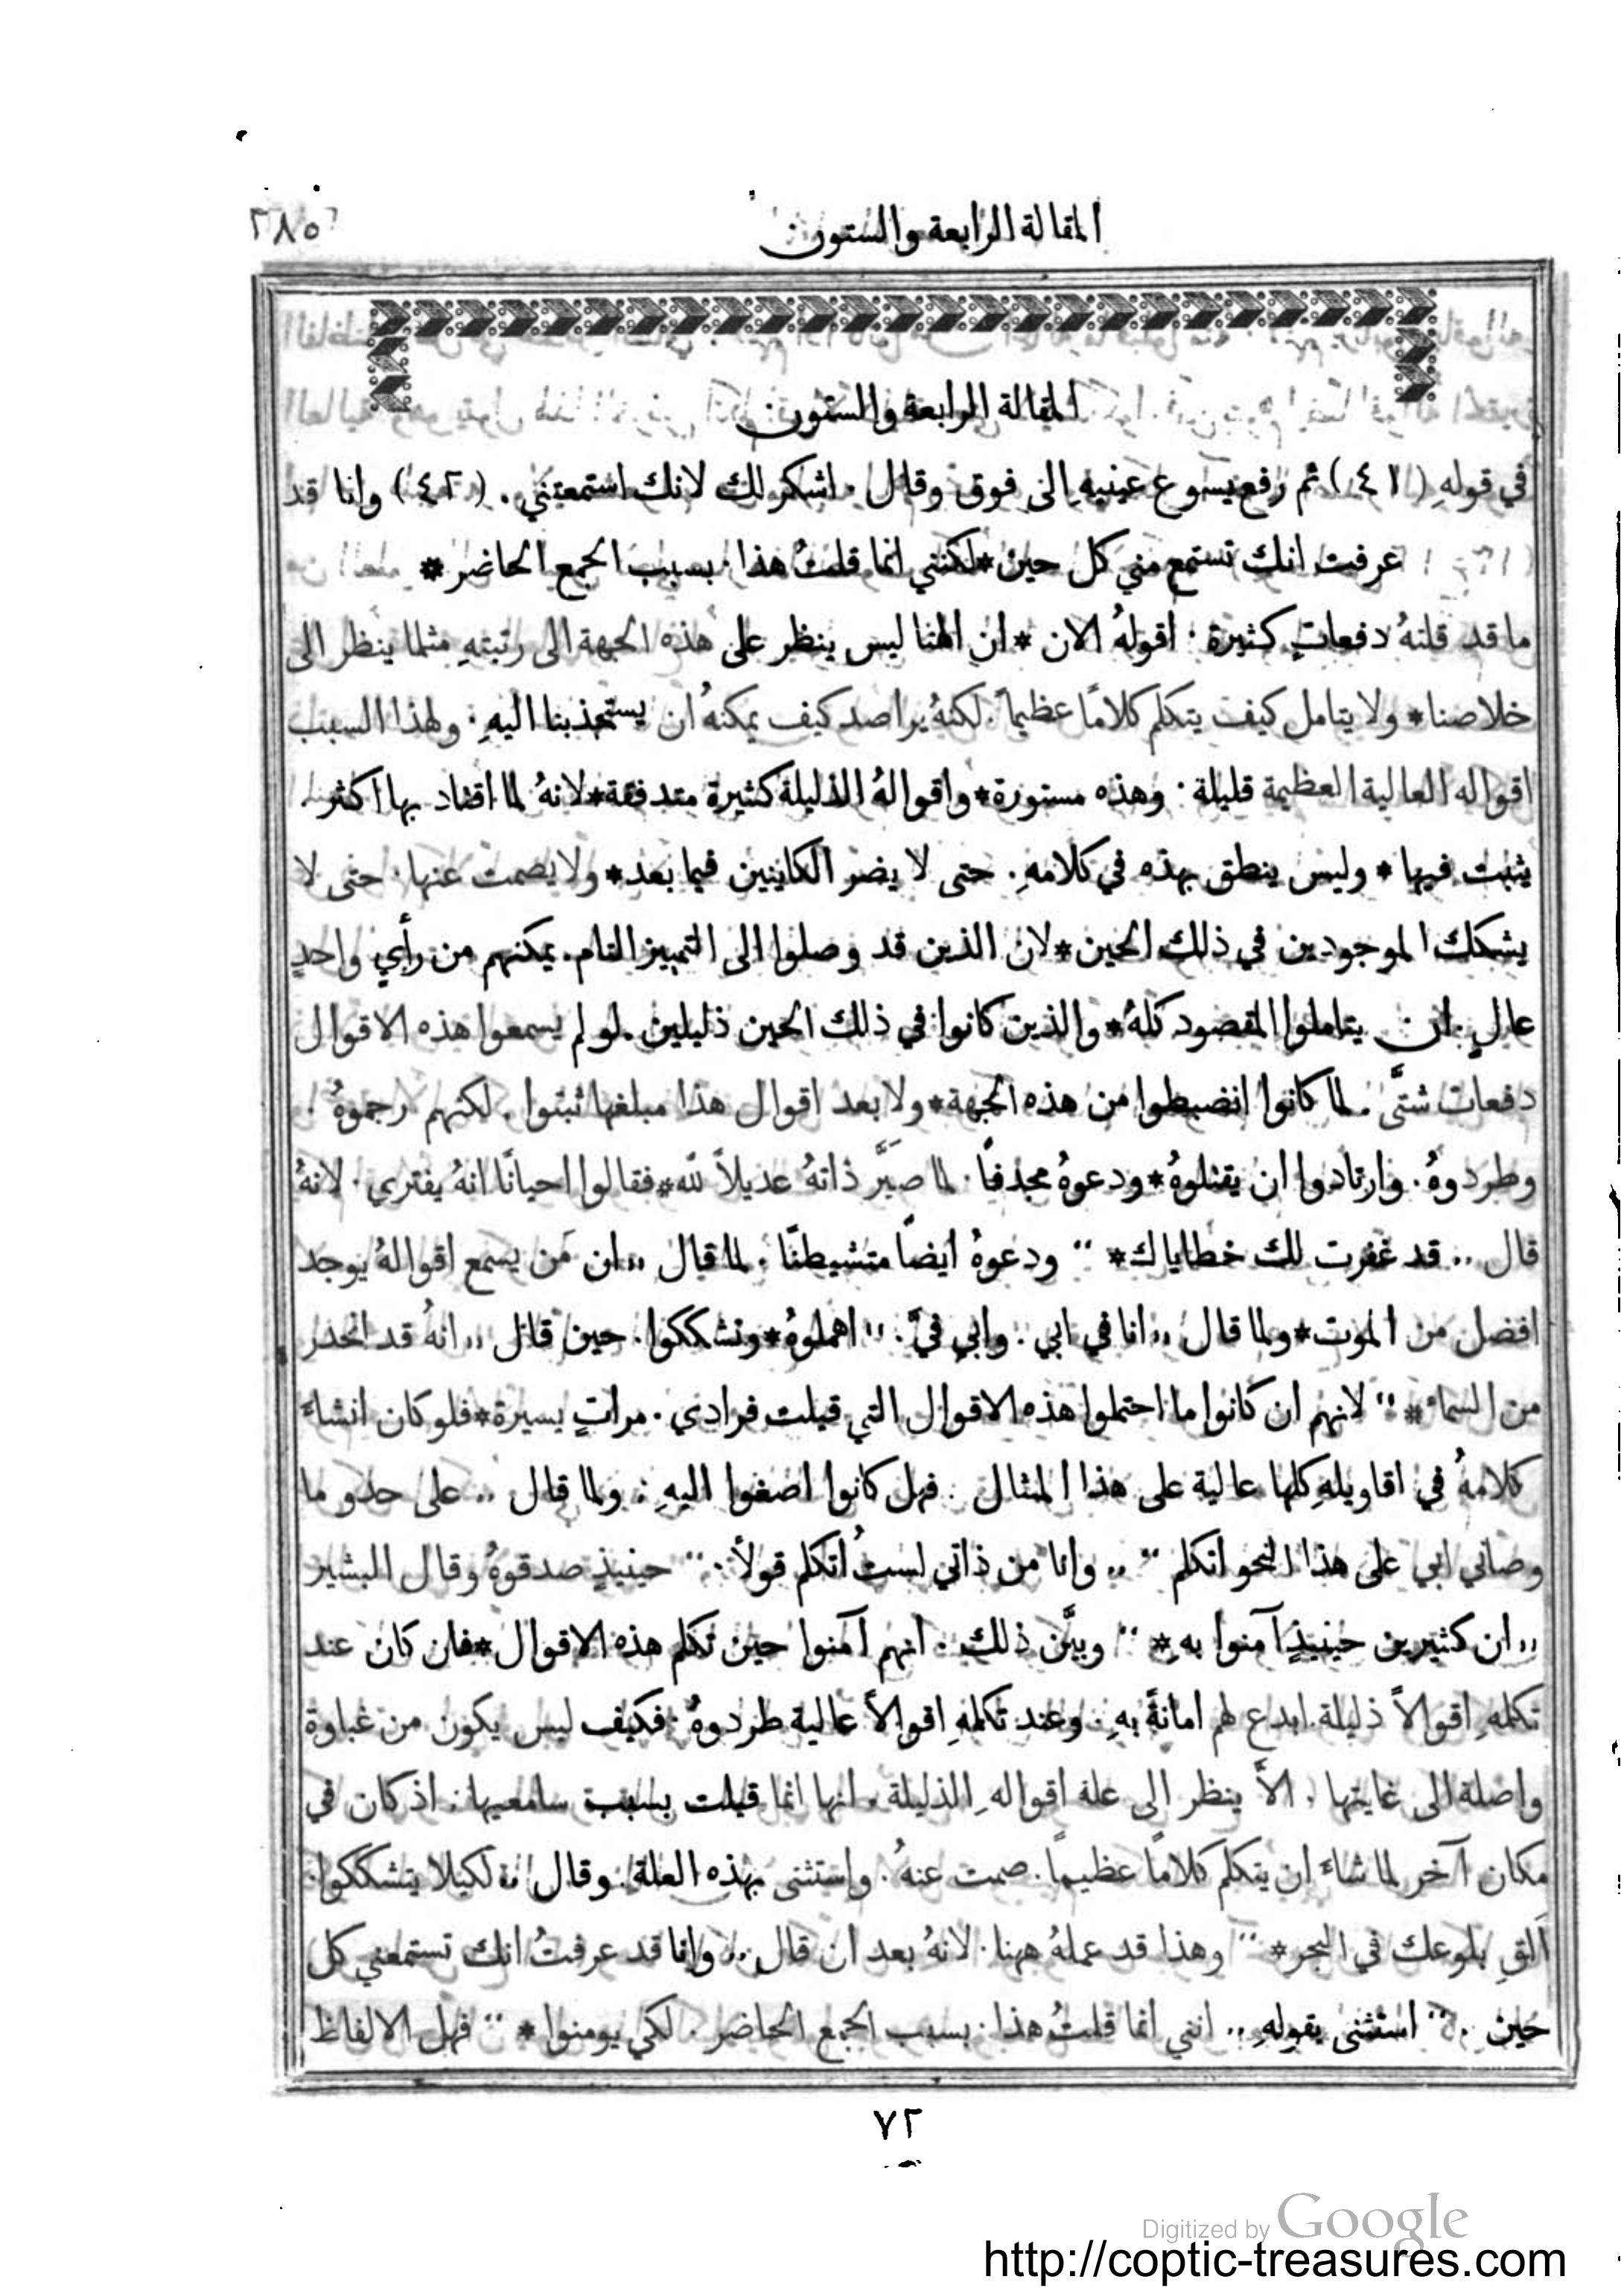 المقالة الرابعة والستون
٢٨٥
المقالة الرابعة والستون
في قولهِ (٤١) ثم رفع يسوع عينيهِ الى فوق وقال . اشكر لك لانك استمعتني . (٤٢) وانا قد
عرفت انك تستمع مني كل حين * لكنني انما قلتُ هذا . بسبب الجمع الحاضر *
ما قد قلتهُ دفعاتٍ كثيرة . اقولهُ الان * ان الهنا ليس ينظر على هذه الجهة الى رتبتهِ مثلما ينظر الى
خلاصنا * ولا يتامل كيف يتكلم كلامًا عظيماً . لكنهُ يراصد كيف يمكنهُ ان يستجذبنا اليهِ . ولهذا السبب
اقواله العالية العظيمة قليلة . وهذه مستورة * واقوالهُ الذليلة كثيرة متدفقة * لانهُ لما اقتاد بها اكثر .
يثبت فيها * وليس ينطق بهذه في كلامهِ . حتى لا يضر الكاينين فيما بعد * ولا يصمت عنها . حتى لا
يشكك الموجودين في ذلك الحين * لان الذين قد وصلوا الى التمييز التام . يمكنهم من رأيٍ واحدٍ
عالٍ . ان يتاملوا المقصود كلهُ * والذين كانوا في ذلك الحين ذليلين . لو لم يسمعوا هذه الاقوال
دفعات شتَّى . لما كانوا انضبطوا من هذه الجهة * ولا بعد اقوال هذا مبلغها ثبتوا . لكنهم رجموهُ .
وطردوهُ . وارتادوا ان يقتلوهُ * ودعوهُ مجدفًا . لما صيَّر ذاتهُ عديلاً لله * فقالوا احيانًا انهُ يفتري . لانهُ
قال ,, قد غفرت لك خطاياك * " ودعوهُ ايضاً متشيطنًا . لما قال ,, ان من يسمع اقوالهُ يوجد
افضل من الموت * ولما قال ,, انا في ابي . وابي فيَّ . " اهملوهُ * وتشككوا . حين قال ,, انهُ قد انحدر
من السماء * " لانهم ان كانوا ما احتملوا هذه الاقوال التي قيلت فرادي . مراتٍ يسيرة * فلو كان انشاءَ
كلامهُ في اقاويلهِ كلها عالية على هذا المثال . فهل كانوا اصغوا اليهِ : ولما قال ,, على حدو ما
وصاني ابي على هذا النحو اتكلم " ,, وانا من ذاتي لستُ اتكلم قولاً . " حينيذٍ صدقوهُ وقال البشير
,, ان كثيرين حينيذٍ آمنوا بهِ * " وبيَّن ذلك . انهم آمنوا حين تكلم هذه الاقوال * فان كان عند
تكلمهِ اقوالاً ذليلة . ابدع لهم امانةً بهِ . وعند تكلمهِ اقوالاً عالية طردوهُ . فكيف ليس يكون من غباوة
واصلة الى غايتها . الاَّ ينظر الى علة اقواله الذليلة . انها انما قيلت بسبب سامعيها : اذ كان في
مكان آخر لما شاءَ ان يتكلم كلامًا عظيمًا . صمت عنهُ . واستثنى بهذه العلة . وقال ,, لكيلا يتشككوا .
اَلقِ بلوعك في البحر * " وهذا قد عملهُ ههنا . لانهُ بعد ان قال ,, وانا قد عرفتُ انك تستمعني كل
حين . " استثنى بقولهِ ,, انني انما قلتُ هذا . بسبب الجمع الحاضر . لكي يومنوا * " فهل الالفاظ
٧٢
Digitized by Google
http://coptic-treasures.com